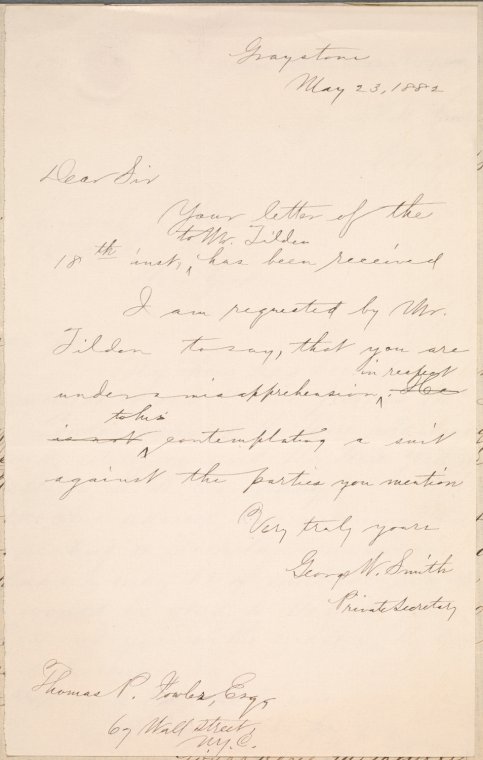 Graystone
May 23, 1882
Dear Sir
Your letter of the
to Mr. Tilden
18th inst, ^ has been received
I am requested by Mr.
Tilden to say, that you are
in respect
under a misapprehension, ^ He
to his
is not ^ contemplating a suit
against the parties you mention
Very truly yours
George W. Smith
Private Secretary
Thomas P. Fowler, Esq,
67 Wall Street,
N.Y.C.